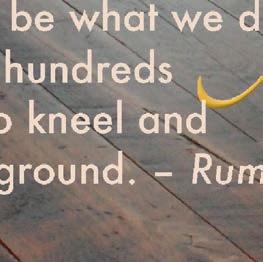 be what we d
hundreds
o kneel and
ground. – Rum